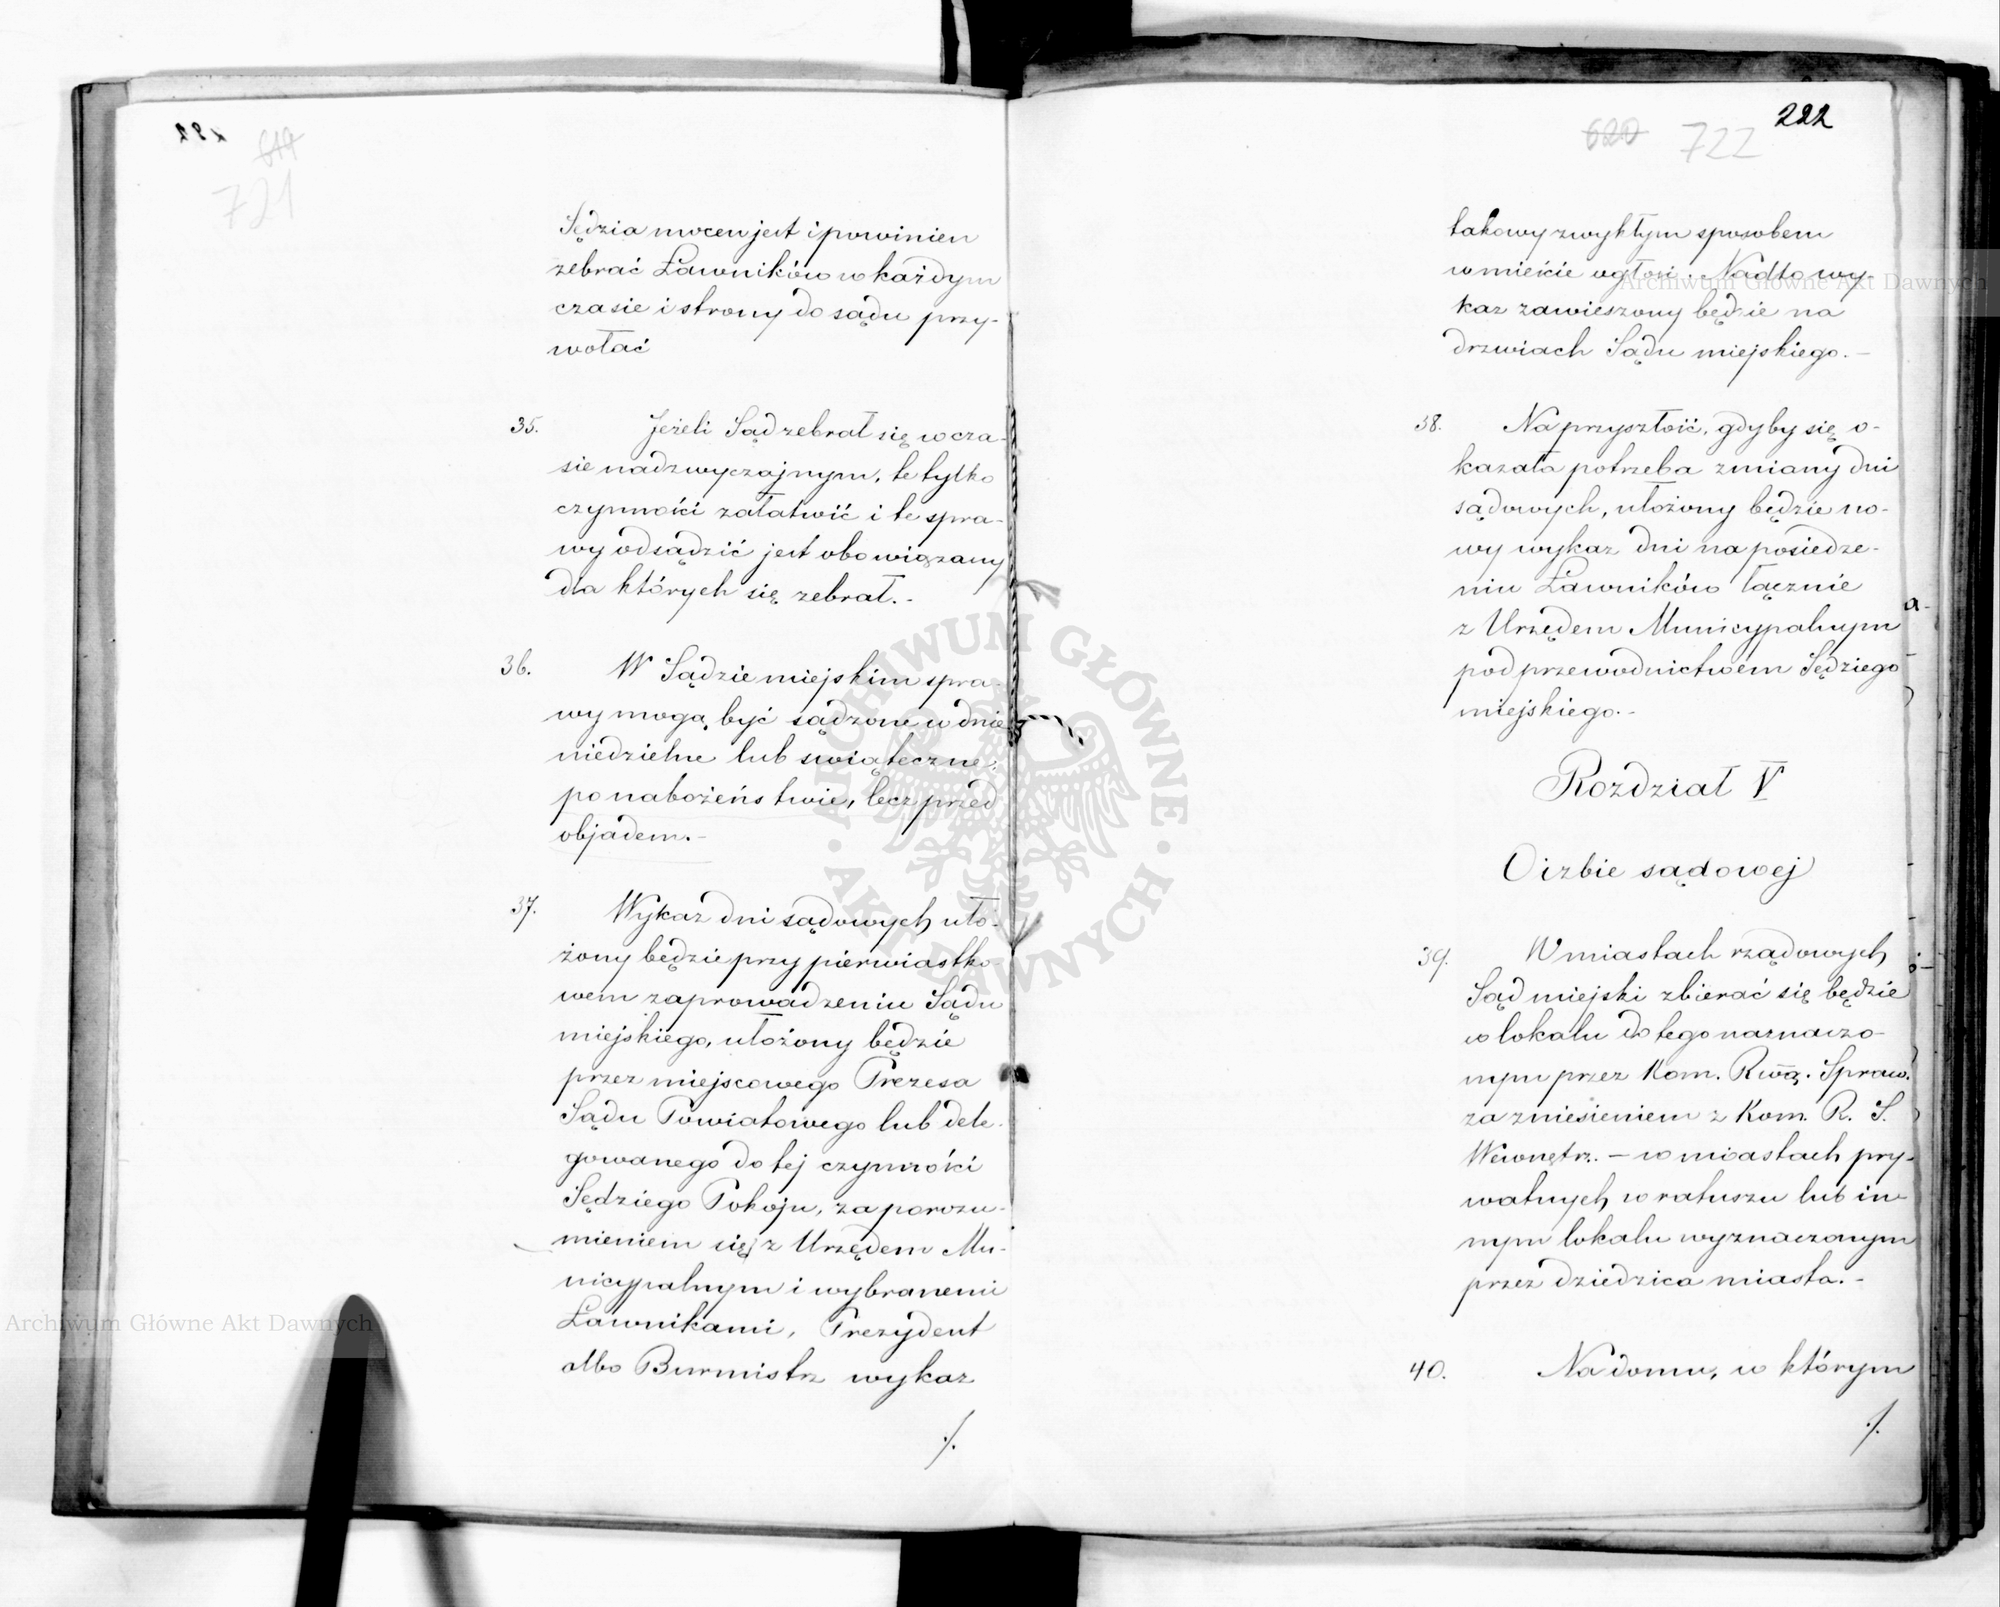 619
721
Sędzia mocen jest i powinien
zebrać Ławników w każdym
czasie i strony do sądu przy-
wołać
35. Jeżeli Sąd zebrał się w cza-
sie nadzwyczajnym, te tylko
czynności załatwić i te spra-
wy odsądzić jest obowiązany
dla których się zebrał.-
36. W Sądzie miejskim spra-
wy mogą być sądzone w dnie
niedzielne lub świąteczne,
po nabożeństwie, lecz przed
objadem.-
37. Wykaz dni sądowych uło-
żony będzie przy pierwiastko-
wem zaprowadzeniu Sądu
miejskiego, ułożony będzie
przez miejscowego Prezesa
Sądu Powiatowego lub dele-
gowanego do tej czynności
Sędziego Pokoju, za porozu-
mieniem się z Urzędem Mu-
nicypalnym i wybranemi
Ławnikami, Prezydent
albo Burmistrz wykaz
./.
222
620 722
takowy zwykłym sposobem
w mieście ogłosi. Nadto wy-
kaz zawieszony będzie na
drzwiach Sądu miejskiego.-
38. Na przyszłość, gdyby się o-
kazała potrzeba zmiany dni
sądowych, ułożony będzie no-
wy wykaz dni na posiedze-
niu Ławników łącznie
z Urzędem Municypalnym
pod przewodnictwem Sędziego
miejskiego.-
Rozdział V
O izbie sądowej
39. W miastach rządowych
Sąd miejski zbierać się będzie
w lokalu do tego naznaczo-
nym przez Kom. Rwą. Spraw.
za zniesieniem z Kom. R. S.
Wewnętrz. - w miastach pry-
watnych w ratuszu lub in-
nym lokalu wyznaczonym
przez dziedzica miasta.-
40. Na domu, w którym
./.
Archiwum Główne Akt Dawnych
Archiwum Główne Akt Dawnych
ARCHIWUM GŁÓWNE · AKT DAWNYCH ·